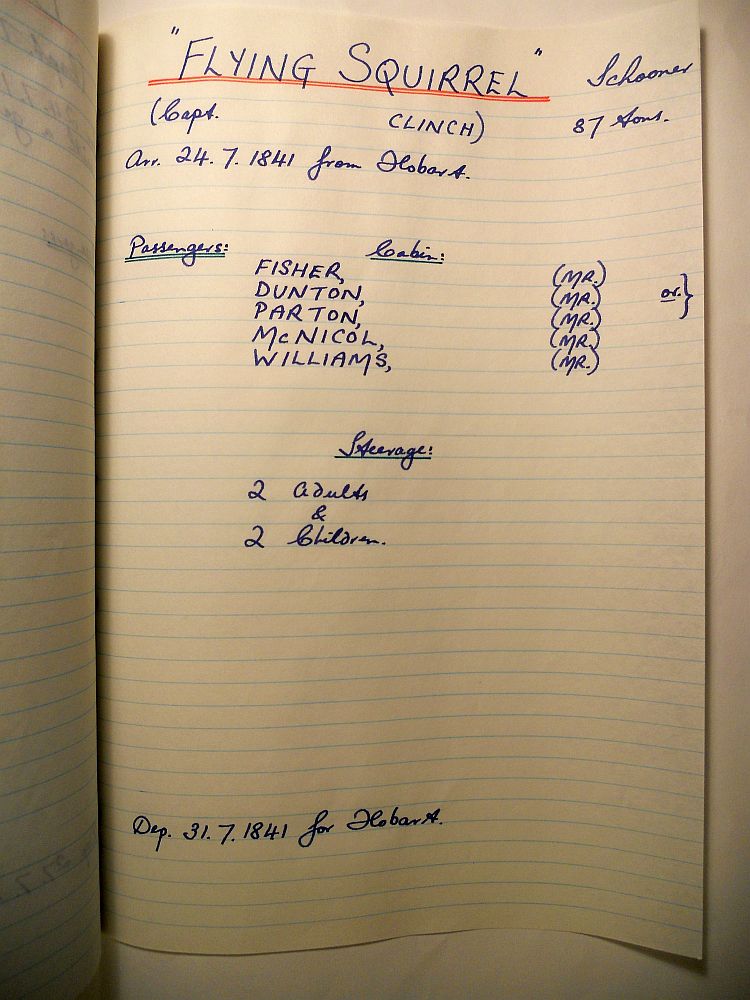 "FLYING SQUIRREL" Schooner
(Capt. CLINCH) 87 tons.
Arr. 24.7.1841 from Hobart.
Passengers: Cabin:
FISHER, (MR.)
DUNTON, (MR.) or. }
PARTON, (MR.)
McNICOL, (MR.)
WILLIAMS, (MR.)
Steerage:
2 Adults
&
2 Children.
Dep. 31.7.1841 for Hobart.